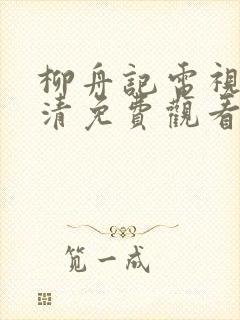 柳舟記電視
清免費觀看
笕一成